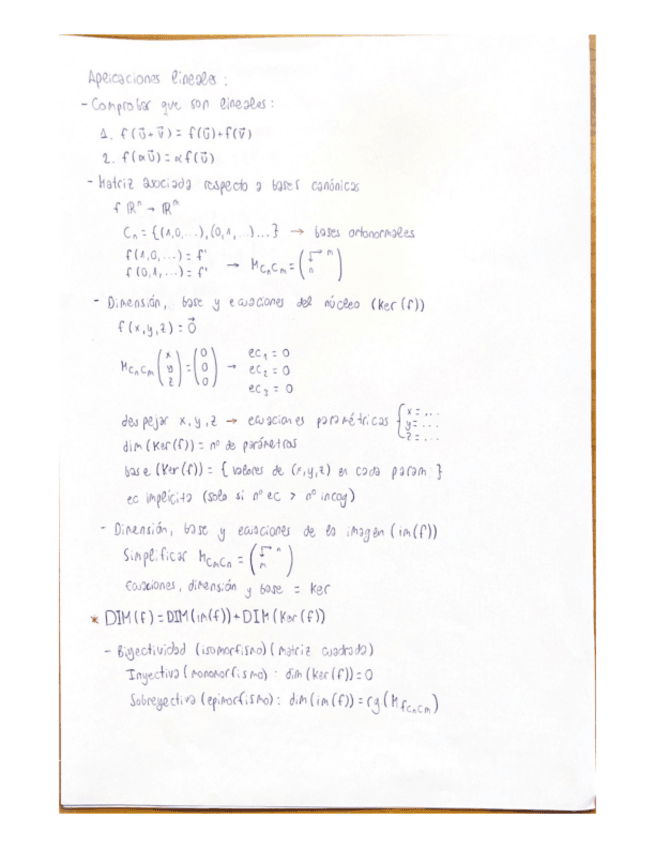 Aplicaciones lineales:
- Comprobar que son lineales:
1. f(ū+v̄) = f(ū)+f(v̄)
2. f(αū) = αf(ū)
- Matriz asociada respecto a bases canónicas
f ℝⁿ → ℝᵐ
Cₙ = {(1,0,...),(0,1,...)...} → bases ortonormales
f(1,0,...) = f'
f(0,1,...) = f' → M_CₙCₘ = ( m n )
- Dimensión, base y ecuaciones del núcleo (Ker(f))
f(x,y,z) = 0⃗
M_CₙCₘ (x y z) = (0 0 0) → ec₁ = 0
ec₂ = 0
ec₃ = 0
despejar x,y,z → ecuaciones paramétricas { x = ...
y = ...
z = ...
dim(Ker(f)) = nº de parámetros
base (Ker(f)) = { valores de (x,y,z) en cada param }
ec implícita (solo si nº ec > nº incog)
- Dimensión, base y ecuaciones de la imagen (im(f))
Simplificar M_CₘCₙ = ( n m )
Ecuaciones, dimensión y base = Ker
* DIM(f) = DIM(im(f)) + DIM(Ker(f))
- Biyectividad (isomorfismo) (matriz cuadrada)
Inyectiva (monomorfismo) : dim(Ker(f)) = 0
Sobreyectiva (epimorfismo) : dim(im(f)) = rg(M_fCₙCₘ)